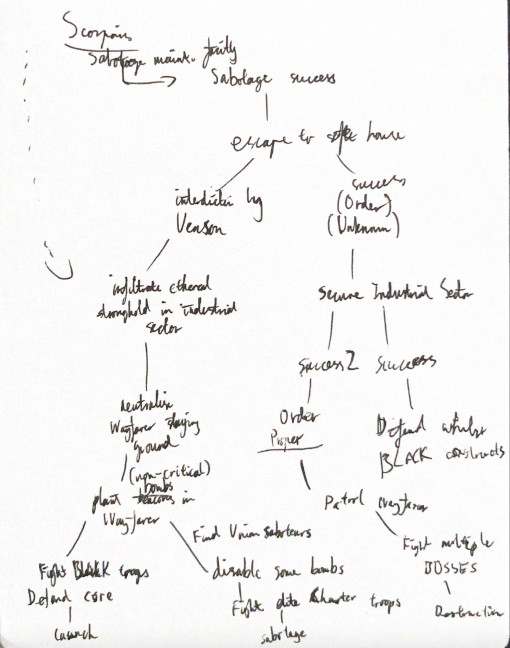 Scorpions
Sabotage maint. facility
Sabotage success
escape to safe house
interdiction by
Venson
success
(Order)
(Unknown)
infiltrate ethereal
stronghold in industrial
sector
secure Industrial Sector
Success 2
Success
neutralise
Wayfarer staging
ground
(non-critical)
bombs
plant in
Wayfarer
Order
Proper
Defend whilst
BLACK constructs
Patrol wayfarer
Find Union saboteurs
Fight multiple
BOSSES
Destruction
Fight BLACK troops
Defend core
Launch
disable some bombs
Fight elite troops
sabotage